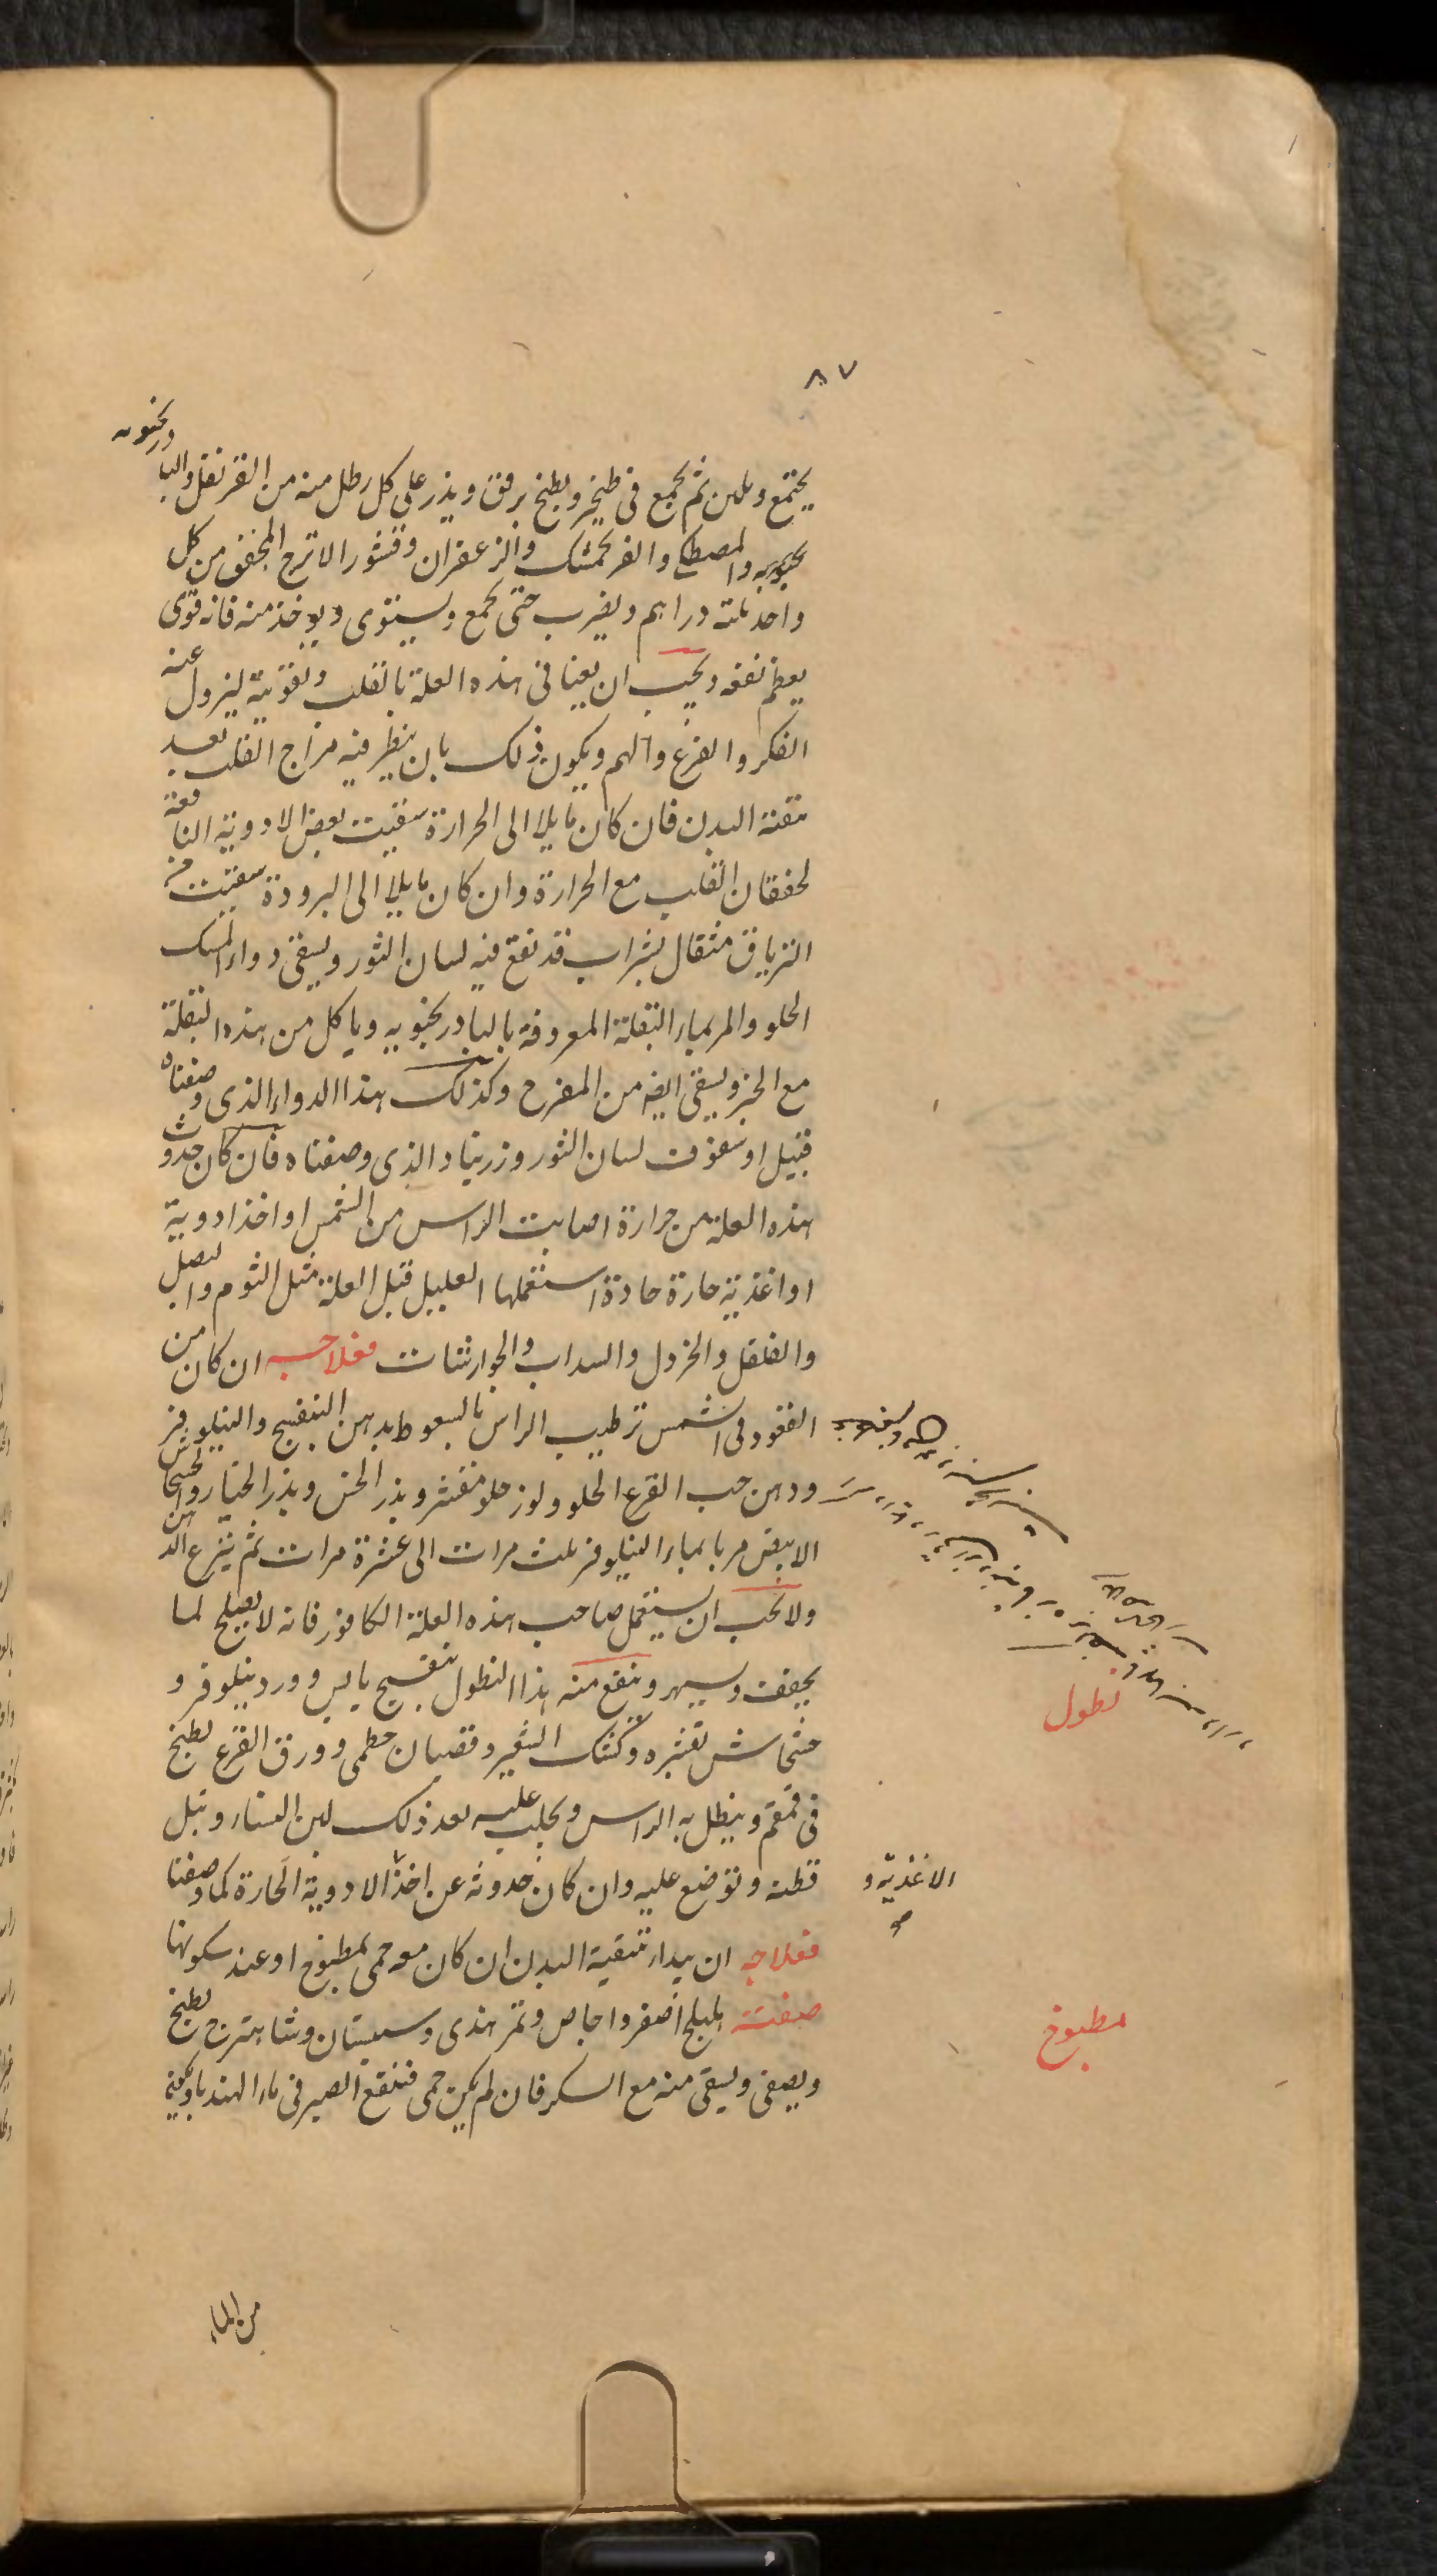 ٨٧
يجتمع ويلين ثم يجمع فى طنجير ويطبخ برفق ويذر على كل رطل منه من القرنفل والبا
درنجويه
نجويه والمصطكى والفرنجمشك والزعفران وقشور الاترج المجفف من كل
واحد ثلثة دراهم ويضرب حتى يجمع ويستوى ويؤخذ منه فانه قوى
يعظم نفعه ويجب ان يعنا فى هذه العلة بالقلب وتقويته ليزول عنه
الفكر والفزع والهم ويكون ذلك بان ينظر فيه مزاج القلب بعد
تنقية البدن فان كان مايلا الى الحرارة سقيت بعض الادوية النافعة
لخفقان القلب مع الحرارة وان كان مايلا الى البرودة سقيت من
الترياق مثقال بشراب قد نقع فيه لسان الثور ويسقى دواء المسك
الحلو والمر بماء البقلة المعروفة بالبادرنجبويه وياكل من هذه البقلة
مع الخبز ويسقى ايضا من المفرح وكذلك هذا الدواء الذى وصفناه
قبيل او سفوف لسان الثور وزرنباد الذى وصفناه فان كان حدوث
هذه العلة من حرارة اصابت الراس من الشمس او اخذ ادوية
او اغذية حارة حادة استعملها العليل قبل العلة مثل الثوم والبصل
والفلفل والخردل والسداب والجوارشنات فعلاجه ان كان من
القعود فى الشمس ترطيب الراس بالسعوط بدهن البنفسج والنيلوفر
ودهن حب القرع الحلو ولوز حلو مقشر وبذر الخس وبذر الخيار والخشخاش
الابيض مربا بماء النيلوفر ثلث مرات الى عشرة مرات ثم ينزع الدهن
ولا يجب ان يستعمل صاحب هذه العلة الكافور فانه لا يصلح لما
يجفف ويسهر وينفع منه هذا النطول بنفسج يابس وورد نيلوفر و
خشخاش بقشره وكشك الشعير وقضبان خطمى وورق القرع يطبخ
فى قمقم وينطل به الراس ويحلب عليه بعد ذلك لبن النساء وتبل
قطنة وتوضع عليه وان كان حدوثه عن اخذ الادوية الحارة كما وصفنا
فعلاجه ان يبداء بتنقية البدن ان كان معه حمى بمطبوخ او عند سكونها
صفته هليلج اصفر واجاص وتمر هندى وسبستان وشاهترج يطبخ
ويصفى ويسقى منه مع السكر فان لم يكن حمى فنقع الصبر فى ماء الهندبا ويكفيه
نطول
الاغذية و
صح
مطبوخ
من الماء